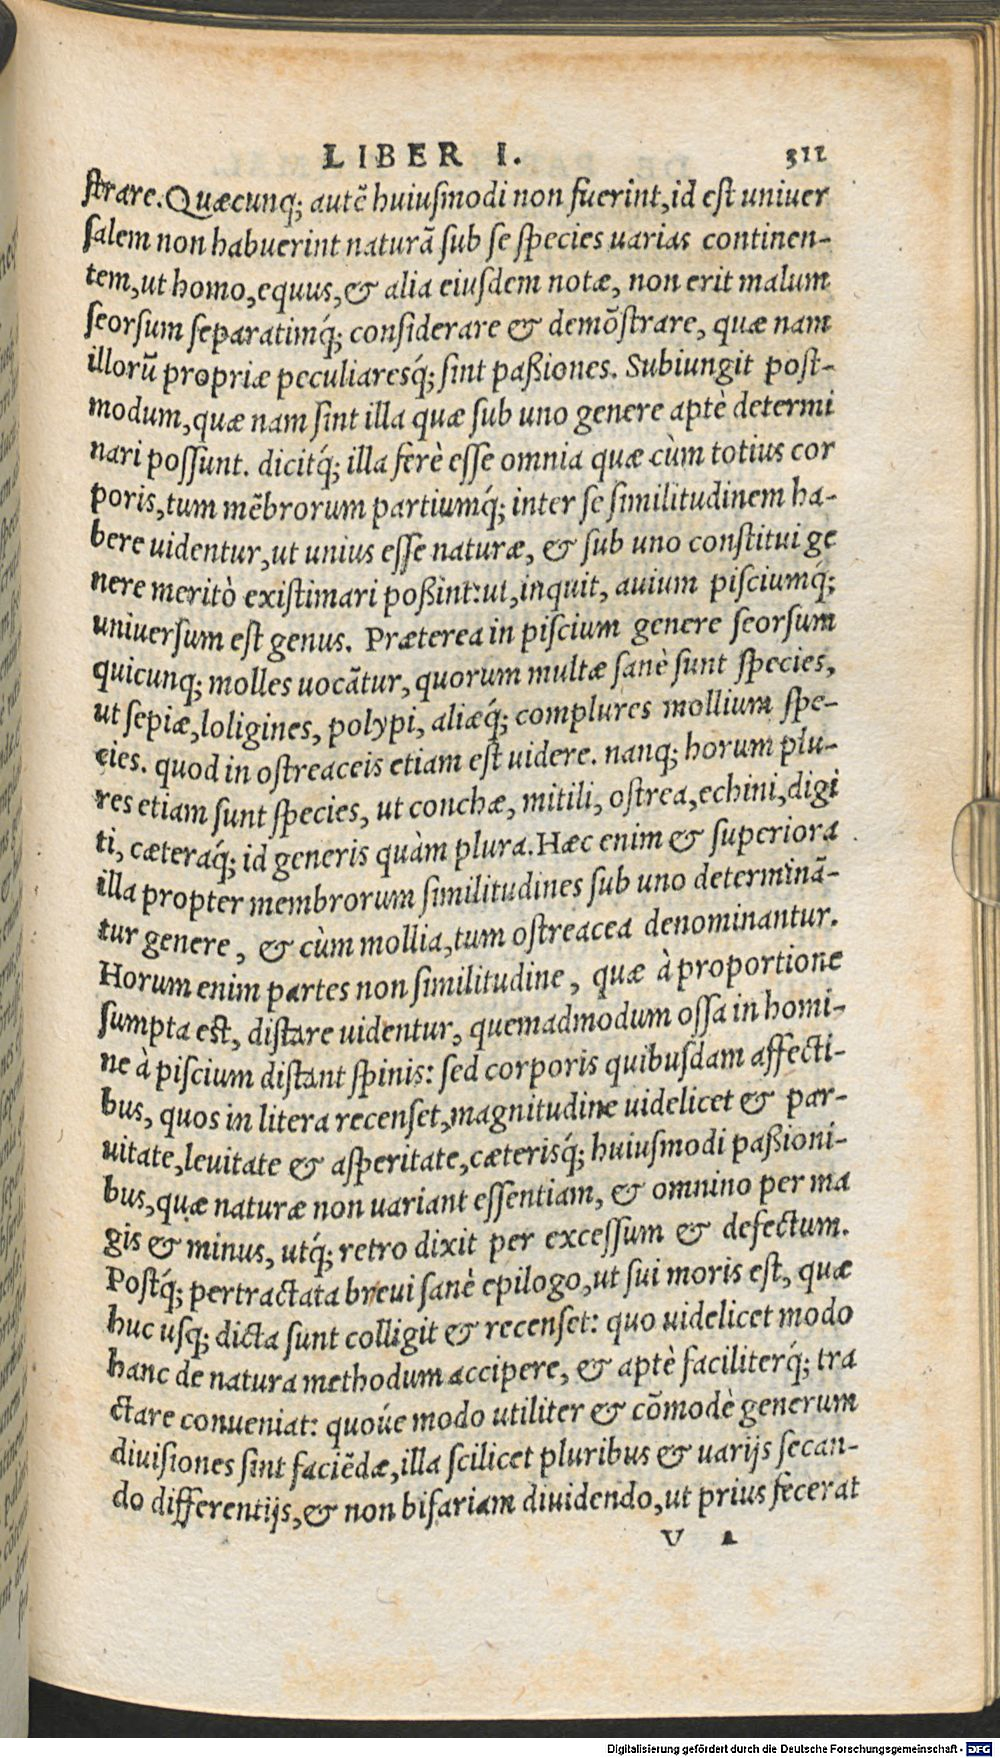 LIBER I. 311
strare. Quæcunq; autẽ huiusmodi non fuerint, id est univer
salem non habuerint naturã sub se species varias continen-
tem, ut homo, equus, & alia eiusdem notæ, non erit malum
seorsum separatimq́; considerare & demõstrare, quæ nam
illorũ propriæ peculiaresq́; sint paßiones. Subiungit post-
modum, quæ nam sint illa quæ sub uno genere aptè determi
nari possunt. dicitq́; illa ferè esse omnia quæ cùm totius cor
poris, tum mẽbrorum partiumq́; inter se similitudinem ha-
bere uidentur, ut unius esse naturæ, & sub uno constitui ge
nere meritò existimari poßint: ut, inquit, avium pisciumq́;
universum est genus. Præterea in piscium genere seorsum
quicunq; molles vocãtur, quorum multæ sanè sunt species,
ut sepiæ, loligines, polypi, aliæq́; complures mollium spe-
cies. quod in ostreaceis etiam est videre. nanq; horum plu-
res etiam sunt species, ut conchæ, mitili, ostrea, echini, digi
ti, cæteraq́; id generis quàm plura. Hæc enim & superiora
illa propter membrorum similitudines sub uno determinã-
tur genere, & cùm mollia, tum ostreacea denominantur.
Horum enim partes non similitudine, quæ à proportione
sumpta est, distare uidentur, quemadmodum ossa in homi-
ne à piscium distant spinis: sed corporis quibusdam affecti-
bus, quos in litera recenset, magnitudine uidelicet & par-
vitate, levitate & asperitate, cæterisq́; huiusmodi paßioni-
bus, quæ naturæ non variant essentiam, & omnino per ma
gis & minus, utq́; retro dixit per excessum & defectum.
Postq́; pertractata brevi sanè epilogo, ut sui moris est, quæ
huc usq; dicta sunt colligit & recenset: quo uidelicet modo
hanc de natura methodum accipere, & aptè faciliterq́; tra
ctare conveniat: quoúe modo utiliter & cõmodè generum
divisiones sint faciẽdæ, illa scilicet pluribus & varijs secan-
do differentijs, & non bifariam dividendo, ut prius fecerat
V 1
Digitalisierung gefördert durch die Deutsche Forschungsgemeinschaft - DFG